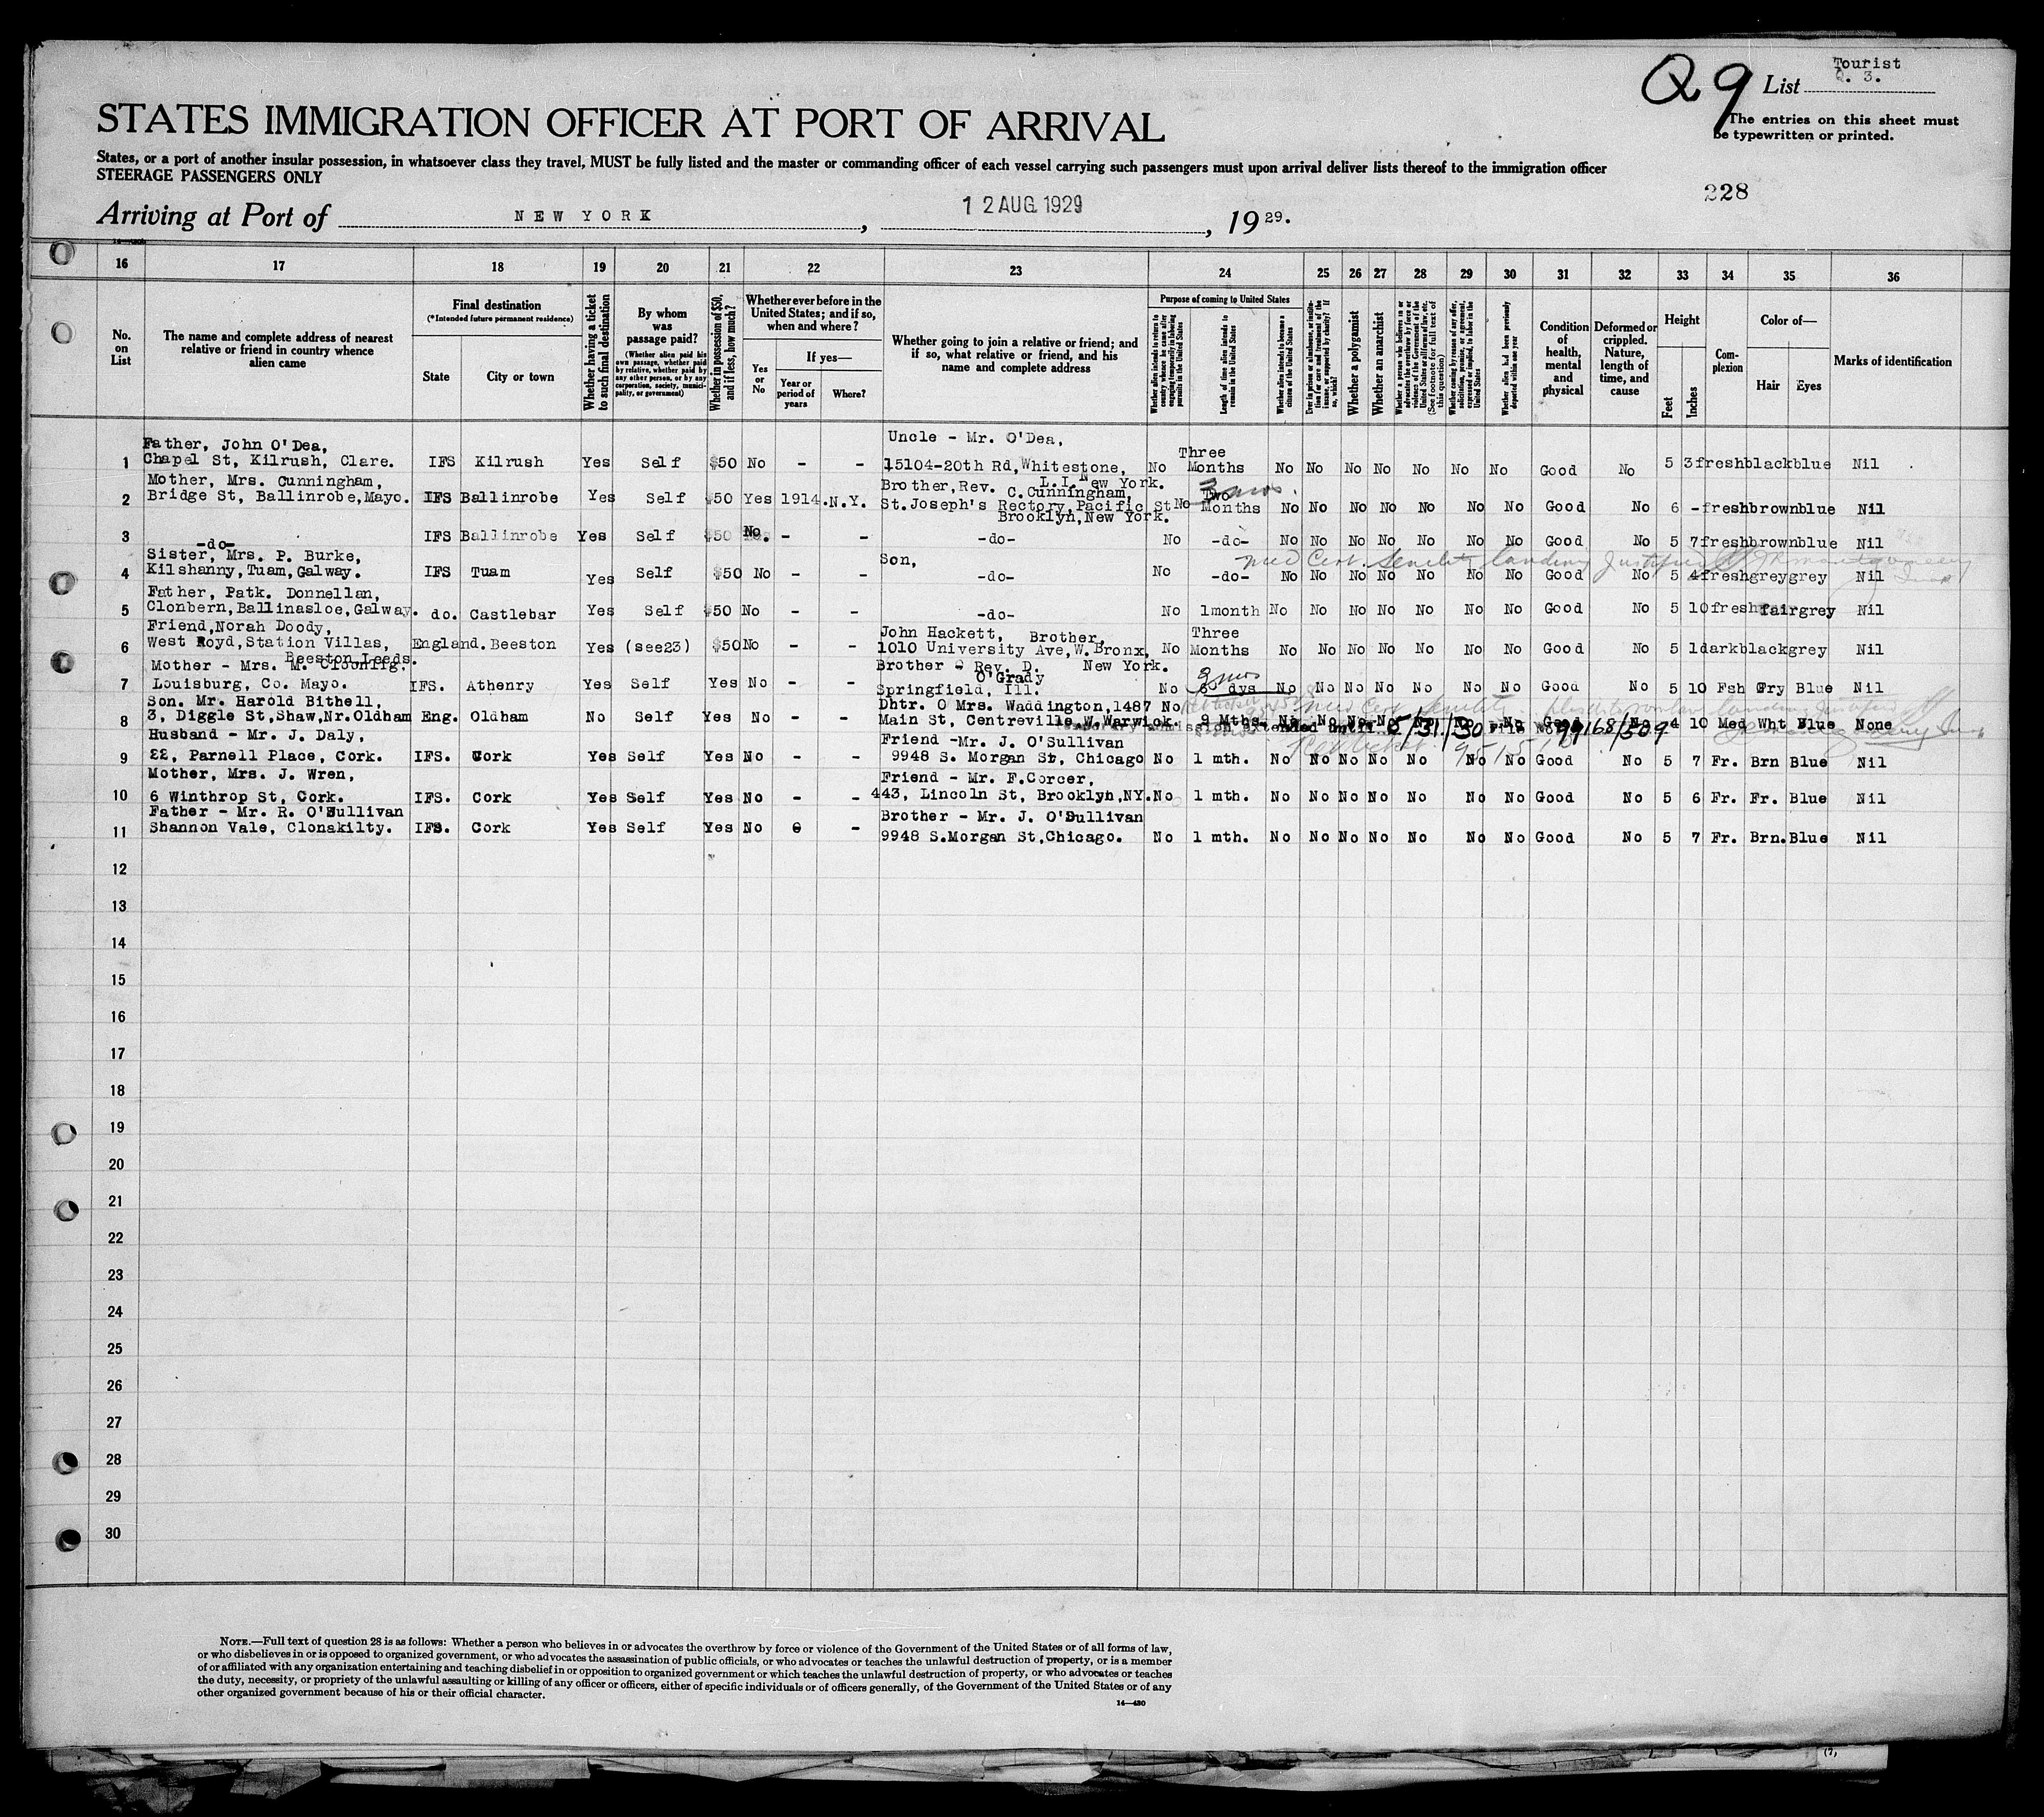 Tourist
Q 9 List Q. 3.
STATES IMMIGRATION OFFICER AT PORT OF ARRIVAL
The entries on this sheet must
be typewritten or printed.
States, or a port of another insular possession, in whatsoever class they travel, MUST be fully listed and the master or commanding officer of each vessel carrying such passengers must upon arrival deliver lists thereof to the immigration officer
STEERAGE PASSENGERS ONLY
228
Arriving at Port of NEW YORK, 12 AUG 1929, 1929.
16 17 18 19 20 21 22 23 24 25 26 27 28 29 30 31 32 33 34 35 36
No. on List
The name and complete address of nearest relative or friend in country whence alien came
Final destination
(*Intended future permanent residence)
State
City or town
Whether having a ticket to such final destination
By whom was passage paid?
(Whether alien paid his own passage, whether paid by relative, whether paid by any other person, or by any corporation, society, municipality, or government)
Whether in possession of $50, and if less, how much?
Whether ever before in the United States; and if so, when and where?
Yes or No
If yes—
Year or period of years
Where?
Whether going to join a relative or friend; and if so, what relative or friend, and his name and complete address
Purpose of coming to United States
Whether alien intends to return to country whence he came after engaging temporarily in laboring pursuits in the United States
Length of time alien intends to remain in the United States
Whether alien intends to become a citizen of the United States
Ever in prison or almshouse, or institution for care and treatment of the insane, or supported by charity? If so, which?
Whether a polygamist
Whether an anarchist
Whether a person who believes in or advocates the overthrow by force or violence of the Government of the United States or all forms of law, etc. (See footnote for full text of this question)
Whether coming by reason of any offer, solicitation, promise, or agreement, expressed or implied, to labor in the United States
Whether alien had been previously deported within one year
Condition of health, mental and physical
Deformed or crippled. Nature, length of time, and cause
Height
Feet
Inches
Complexion
Color of—
Hair
Eyes
Marks of identification
Father, John O'Dea, Uncle - Mr. O'Dea, Three
1 Chapel St, Kilrush, Clare. IFS Kilrush Yes Self $50 No - - 15104-20th Rd, Whitestone, No Months No No No No No No No Good No 5 3 fresh black blue Nil
L.I. New York.
Mother, Mrs. Cunningham, Brother, Rev. C. Cunningham, Two 3 mos.
2 Bridge St, Ballinrobe, Mayo. IFS Ballinrobe Yes Self $50 Yes 1914. N.Y. St. Joseph's Rectory, Pacific St No Months No No No No No No No Good No 6 - fresh brown blue Nil
Brooklyn, New York.
3 -do- IFS Ballinrobe Yes Self $50 No. - - -do- No -do- No No No No No No No Good No 5 7 fresh brown blue Nil
Sister, Mrs. P. Burke, Son, med Cert. Senility landing Justified
4 Kilshanny, Tuam, Galway. IFS Tuam Yes Self $50 No - - -do- No -do- No No No No No No No Good No 5 4 fresh grey grey Nil
Father, Patk. Donnellan,
5 Clonbern, Ballinasloe, Galway. do. Castlebar Yes Self $50 No - - -do- No 1month No No No No No No No Good No 5 10 fresh fair grey Nil
Friend, Norah Doody, John Hackett, Brother, Three
6 West Royd, Station Villas, England. Beeston Yes (see23) $50 No - - 1010 University Ave, W. Bronx, No Months No No No No No No No Good No 5 1 dark black grey Nil
Beeston Leeds. New York.
Mother - Mrs. M. Cloonlig. Brother - Rev. D. O'Grady 3 mos
7 Louisburg, Co. Mayo. IFS. Athenry Yes Self Yes No - - Springfield, Ill. No dys No No No No No No No Good No 5 10 Fsh Gry Blue Nil
Son. Mr. Harold Bithell, Dhtr. O Mrs. Waddington, 1487 No
8 3, Diggle St, Shaw, Nr. Oldham Eng. Oldham No Self Yes No - - Main St, Centreville, W. Warwick. 9 Mths No No No No No No Good No 4 10 Med Wht Blue None
admission extended until 5/31/30 File No 99168/509
Husband - Mr. J. Daly, Friend - Mr. J. O'Sullivan
9 22, Parnell Place, Cork. IFS. Cork Yes Self Yes No - - 9948 S. Morgan St, Chicago No 1 mth. No No No No No No No Good No 5 7 Fr. Brn Blue Nil
Mother, Mrs. J. Wren, Friend - Mr. F. Corcer,
10 6 Winthrop St, Cork. IFS. Cork Yes Self Yes No - - 443, Lincoln St, Brooklyn, NY. No 1 mth. No No No No No No No Good No 5 6 Fr. Fr. Blue Nil
Father - Mr. R. O'Sullivan Brother - Mr. J. O'Sullivan
11 Shannon Vale, Clonakilty. IFS. Cork Yes Self Yes No 0 - 9948 S. Morgan St, Chicago. No 1 mth. No No No No No No No Good No 5 7 Fr. Brn. Blue Nil
12
13
14
15
16
17
18
19
20
21
22
23
24
25
26
27
28
29
30
NOTE.—Full text of question 28 is as follows: Whether a person who believes in or advocates the overthrow by force or violence of the Government of the United States or of all forms of law,
or who disbelieves in or is opposed to organized government, or who advocates the assassination of public officials, or who advocates or teaches the unlawful destruction of property, or is a member
of or affiliated with any organization entertaining and teaching disbelief in or opposition to organized government or which teaches the unlawful destruction of property, or who advocates or teaches
the duty, necessity, or propriety of the unlawful assaulting or killing of any officer or officers, either of specific individuals or of officers generally, of the Government of the United States or of any
other organized government because of his or their official character.
14—430